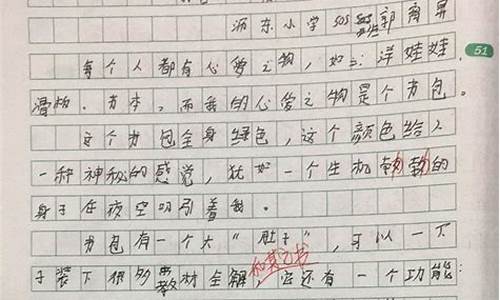 沥东小学505班郭育昇
51
每个人都有心爱之物，如：洋娃娃，
滑板．书本，而我的心爱之物是个书包。
这个书包全身绿色，这个颜色给人
一种神秘的感觉，犹如一个生机勃勃的
身于在夜空吸引着我。
书包有一个大“肚子”，可以一下
子装下很多教材全解和其它书它还有一个功能